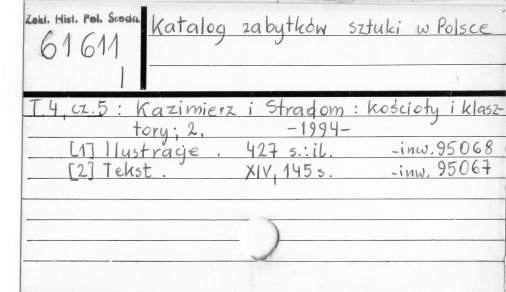 Zakł. Hist. Pol. Średn.
61611
I
Katalog zabytków sztuki w Polsce
T.4, cz.5 : Kazimierz i Stradom : kościoły i klasz-
tory; 2. -1994-
[1] Ilustracje . 427 s.:il. -inw. 95068
[2] Tekst . XIV, 145 s. -inw. 95067